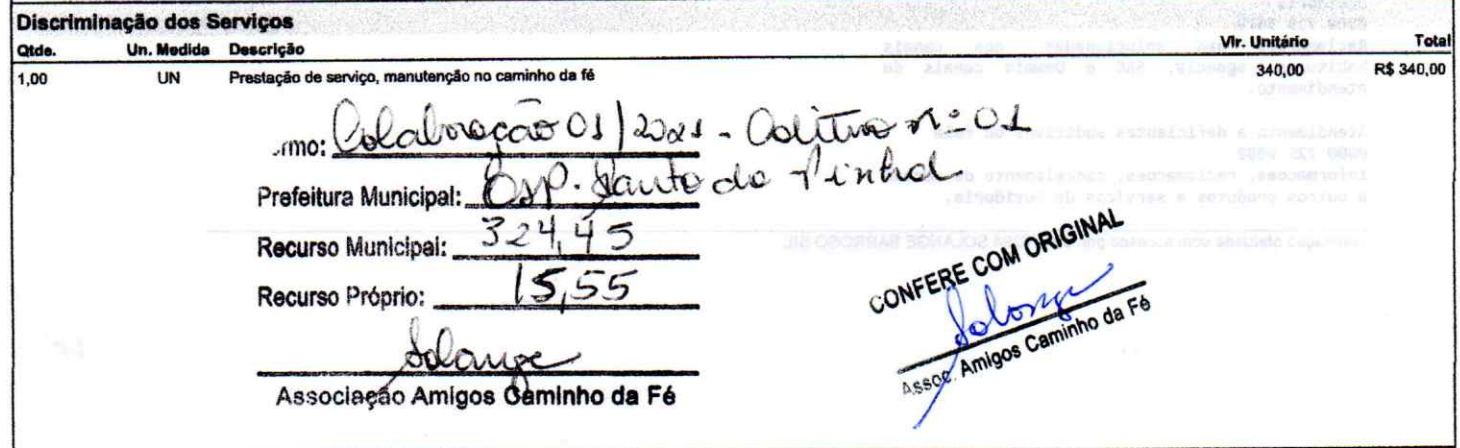 Discriminação dos Serviços
Qtde. Un. Medida Descrição Vlr. Unitário Total
1,00 UN Prestação de serviço, manutenção no caminho da fé 340,00 R$ 340,00
rmo: Colaboração 01/2021 - Aditivo nº 01
Prefeitura Municipal: Esp. Santo do Pinhal
Recurso Municipal: 324,45
Recurso Próprio: 15,55
Solange
Associação Amigos Caminho da Fé
CONFERE COM ORIGINAL
Solange
Assoc. Amigos Caminho da Fé